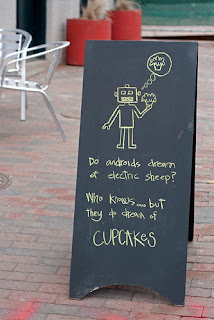 Do androids dream
of electric sheep?
Who knows....but
they do dream of
CUPCAKES